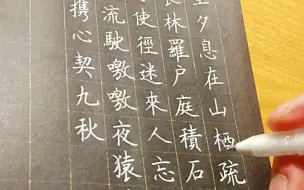 夕息在山栖疏
長林羅户庭積石
使徑迷來人忘
流駛噭噭夜猿
携心契九秋